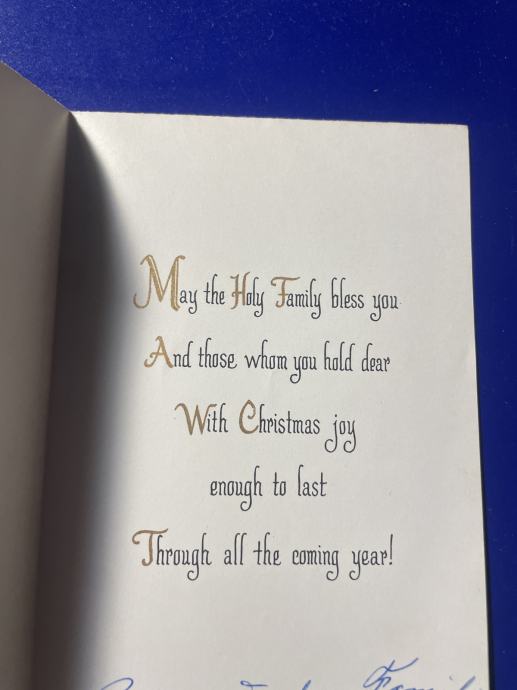 May the Holy Family bless you
And those whom you hold dear
With Christmas joy
enough to last
Through all the coming year!